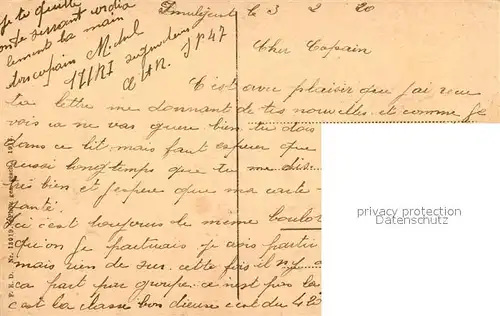 je te quitte
en te serrant cordia
lement la main
ton copain Michel
171 RI
SP 47
le 3 2 20
Cher Copain
C'est avec plaisir que j'ai reçu
ta lettre me donnant de tes nouvelles et comme je
vois ca ne vas guere bien tu dois
dans ce lit mais faut esperer que
aussi longtemps que tu me dis
tres bien et j'espere que ma carte
santé
ici c'est toujours le même boulot
qu'on je partirais je dois partir
mais rien de sur cette fois il n'y
ca part par groupe ce n'est pas la
c'est la classe bon dieu c'est du 42
privacy protection
Datenschutz